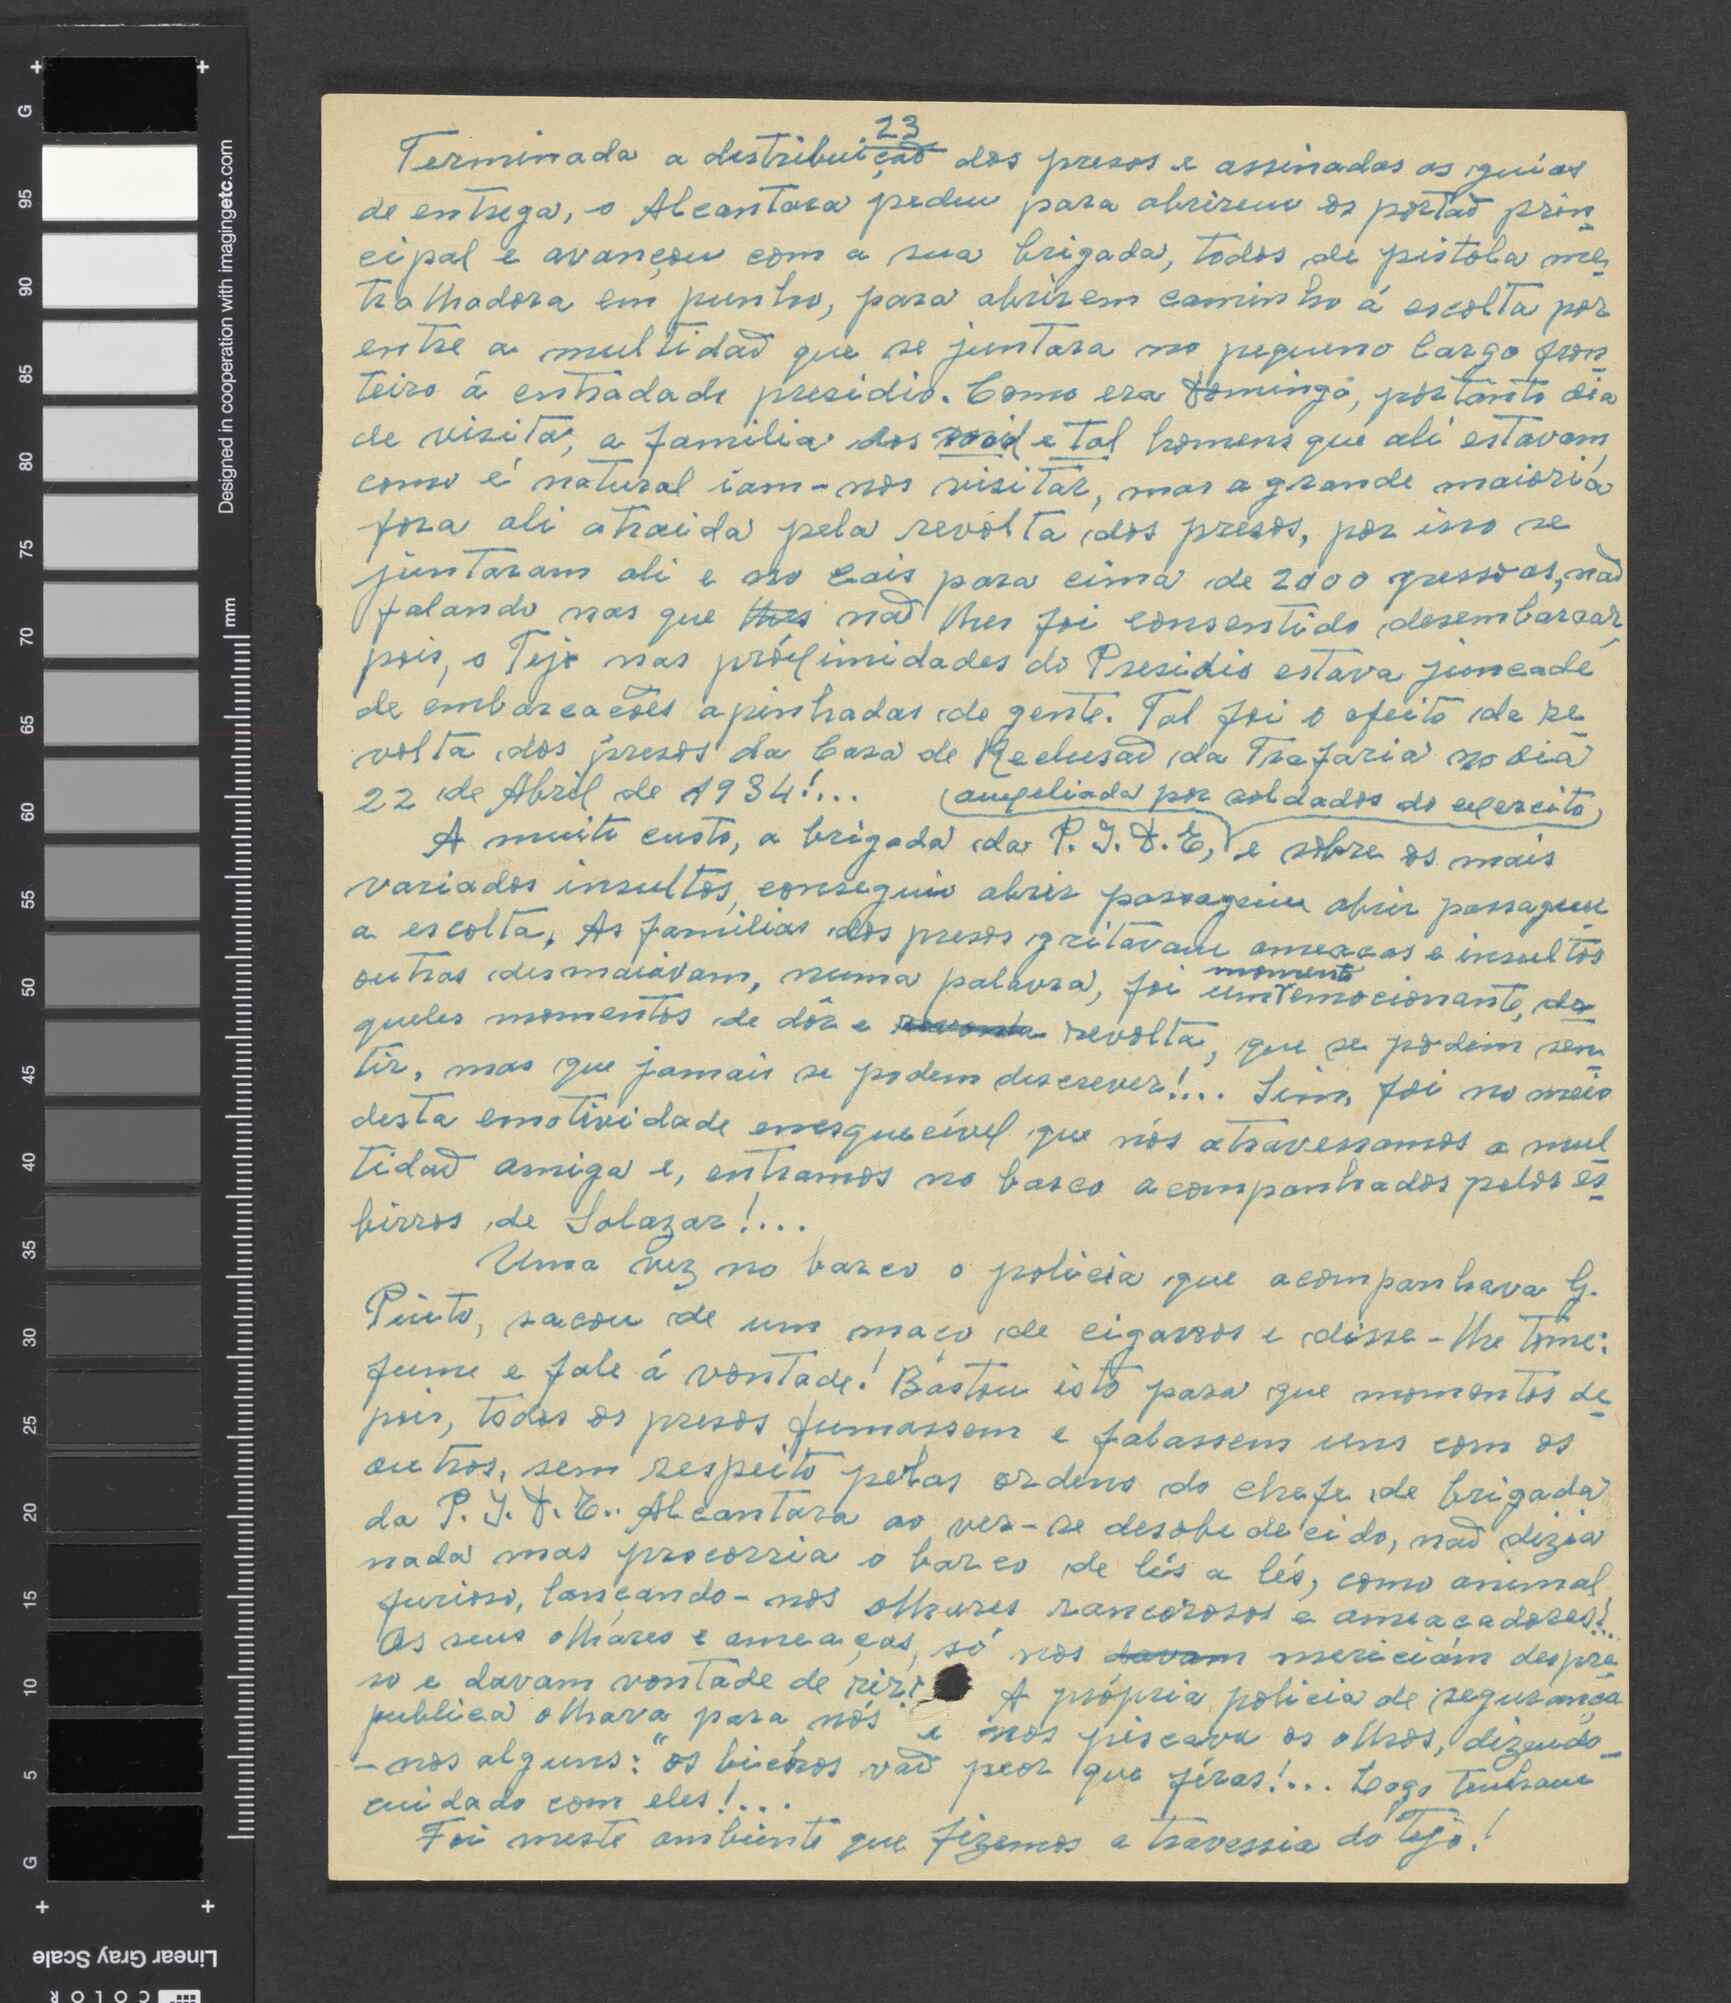 23
Terminada a destribuição dos presos e assinadas as guias
de entrega, o Alcantara pediu para abrirem os portão prin
cipal e avançou com a sua brigada, todos de pistola me
tralhadora em punho, para abrirem caminho á escolta por
entre a multidaõ que se juntara no pequeno largo fron
teiro á entradade presidio. Como era Domingo, portanto dia
de visita, a familia dos e tal homens que ali estavam,
como é natural iam-nos visitar, mas a grande maioria
fora ali atraida pela revolta dos presos, por isso se
juntaram ali e no cais para cima de 2000 pessoas, naõ
falando nas que lhes naõ lhes foi consentido desembarcar,
pois, o Tejo nas próximidades do Presidio estava juncade
de embarcacões apinhadas de gente. Tal foi o efeito da re
volta dos presos da Casa de Reclusaõ da Trafaria no dia
22 de Abril de 1934!...
(auxeliada por soldados do exercito)
A muito custo, a brigada da P. I. D. E, e sobre os mais
variados insultos, conseguiu abrir passagem abrir passagem
a escolta. As familias dos presos gritavam ameacas e insultos
outras desmaiavam, numa palavra, foi um momento emocionante, da
queles momentos de dôr e revolta, que se podem sen
tir, mas que jamais se podem descrever!... Sim, foi no meio
desta emotividade enesquecível que nós atravessamos a mul
tidaõ amiga e, entramos no barco acompanhados pelos es
birros de Salazar!...
Uma vez no barco o policia que acompanhava G.
Pinto, sacou de um maço de cigarros e disse-lhe tome:
fume e fale á vontade! Bastou isto para que momentos de
pois, todos os presos fumassem e falassem uns com os
outros, sem respeito pelas ordens do chefe de brigada
da P. I. D. E.. Alcantara ao ver-se desobedecido, naõ dizia
nada mas precorria o barco de lés a lés, como animal
furioso, lançando-nos olhares rancorosos e ameacadores!..
Os seus olhares e ameaças, só nos davam mericiám despre
so e davam vontade de rir! A própria policia de segurança
publica olhava para nós e nos piscava os olhos, dizendo-
-nos alguns: "os bichos vaõ peor que féras!... Logo tenham
cuidado com eles!...
Foi neste ambiente que fizemos a travessia do Tejo!
Designed in cooperation with imagingetc.com
mm
G
95
90
85
80
75
70
65
60
55
50
45
40
35
30
25
20
15
10
5
G
Linear Gray Scale
COLOR